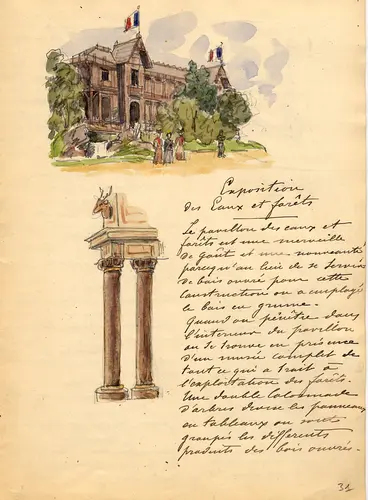 Exposition
des Eaux et forêts
Le pavillon des eaux et
forêts est une merveille
de goût et une nouveauté
parcequ'au lieu de se servir
de bois ouvré pour cette
construction on a employé
le bois en grume.
Quand on pénètre dans
l'intérieur du pavillon
on se trouve en présence
d'un musée complet de
tout ce qui a trait à
l'exploitation des forêts.
Une double colonnade
d'arbres divise les panneaux
en tableaux où sont
groupés les différents
produits des bois ouvrés.
31